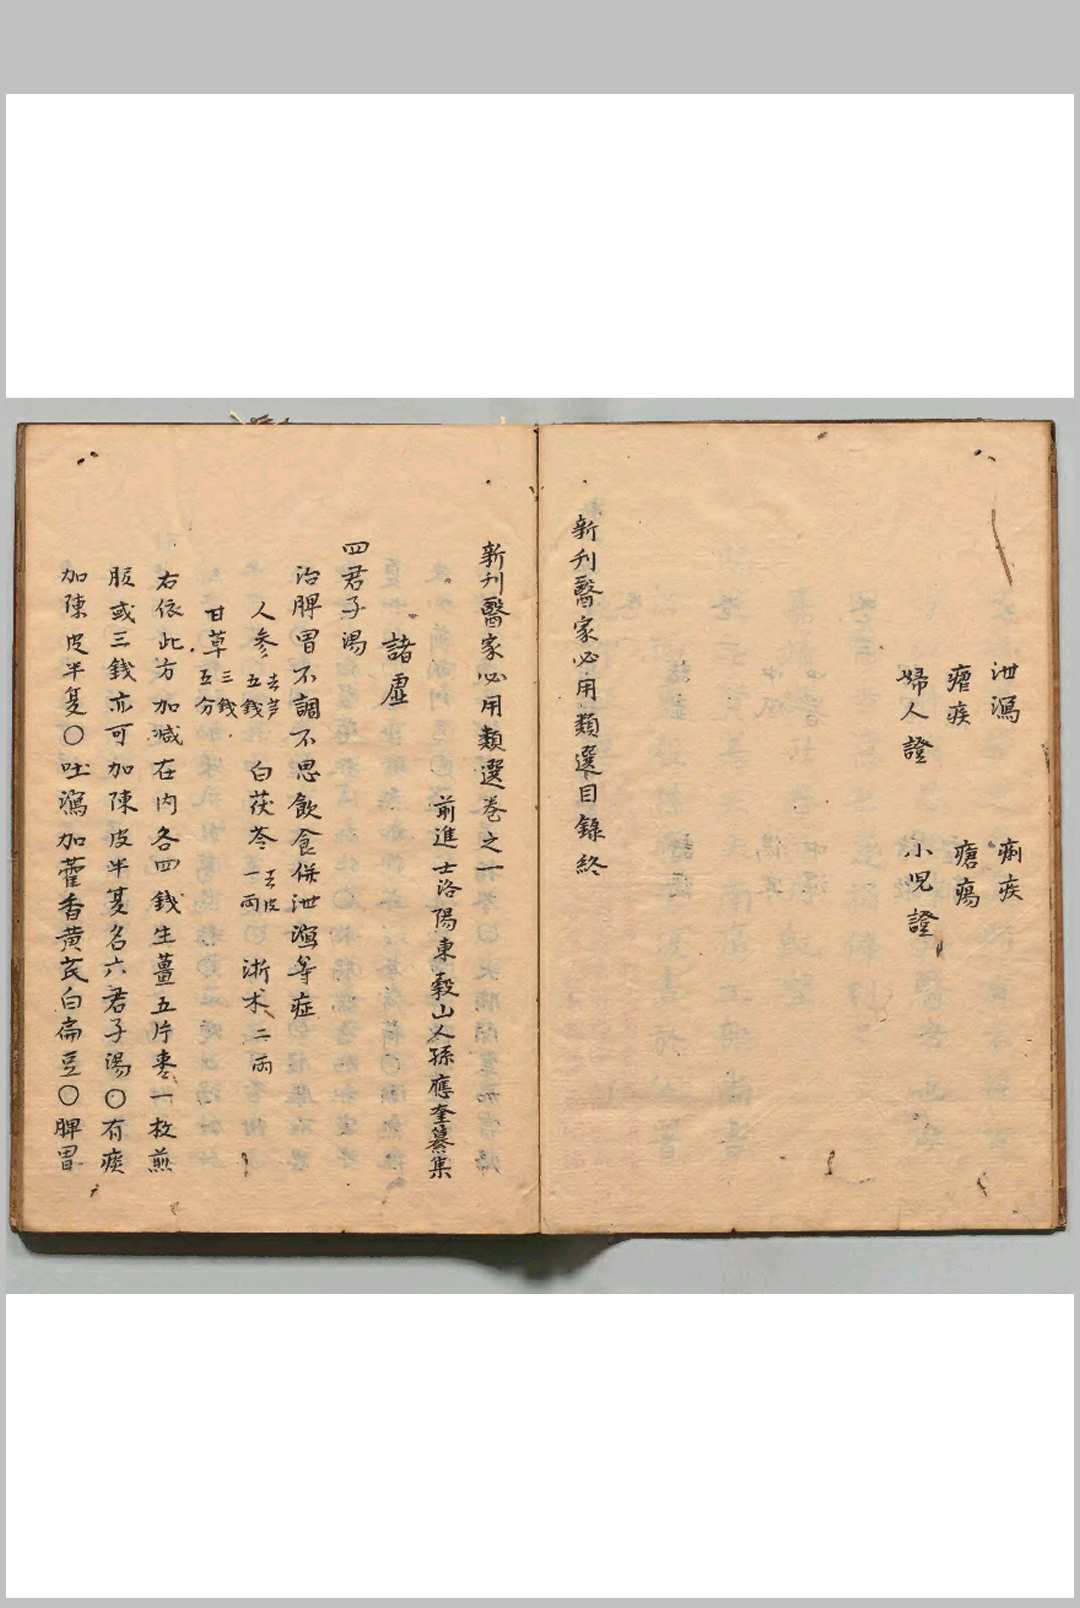 泄瀉　痢疾
瘧疾　瘡瘍
婦人證　小児證
新刊醫家必用類選目錄終
新刊醫家必用類選卷之一
前進士洛陽東穀山人孫應奎纂集
諸虛
四君子湯
治脾胃不調不思飲食併泄瀉等症
人參去芦五錢　白茯苓去皮一兩　浙术二兩
甘草三錢五分
右依此方加減在内各四錢生薑五片棗一枚煎
服或三錢亦可加陳皮半夏名六君子湯〇有痰
加陳皮半夏〇吐瀉加藿香黄芪白扁豆〇脾胃